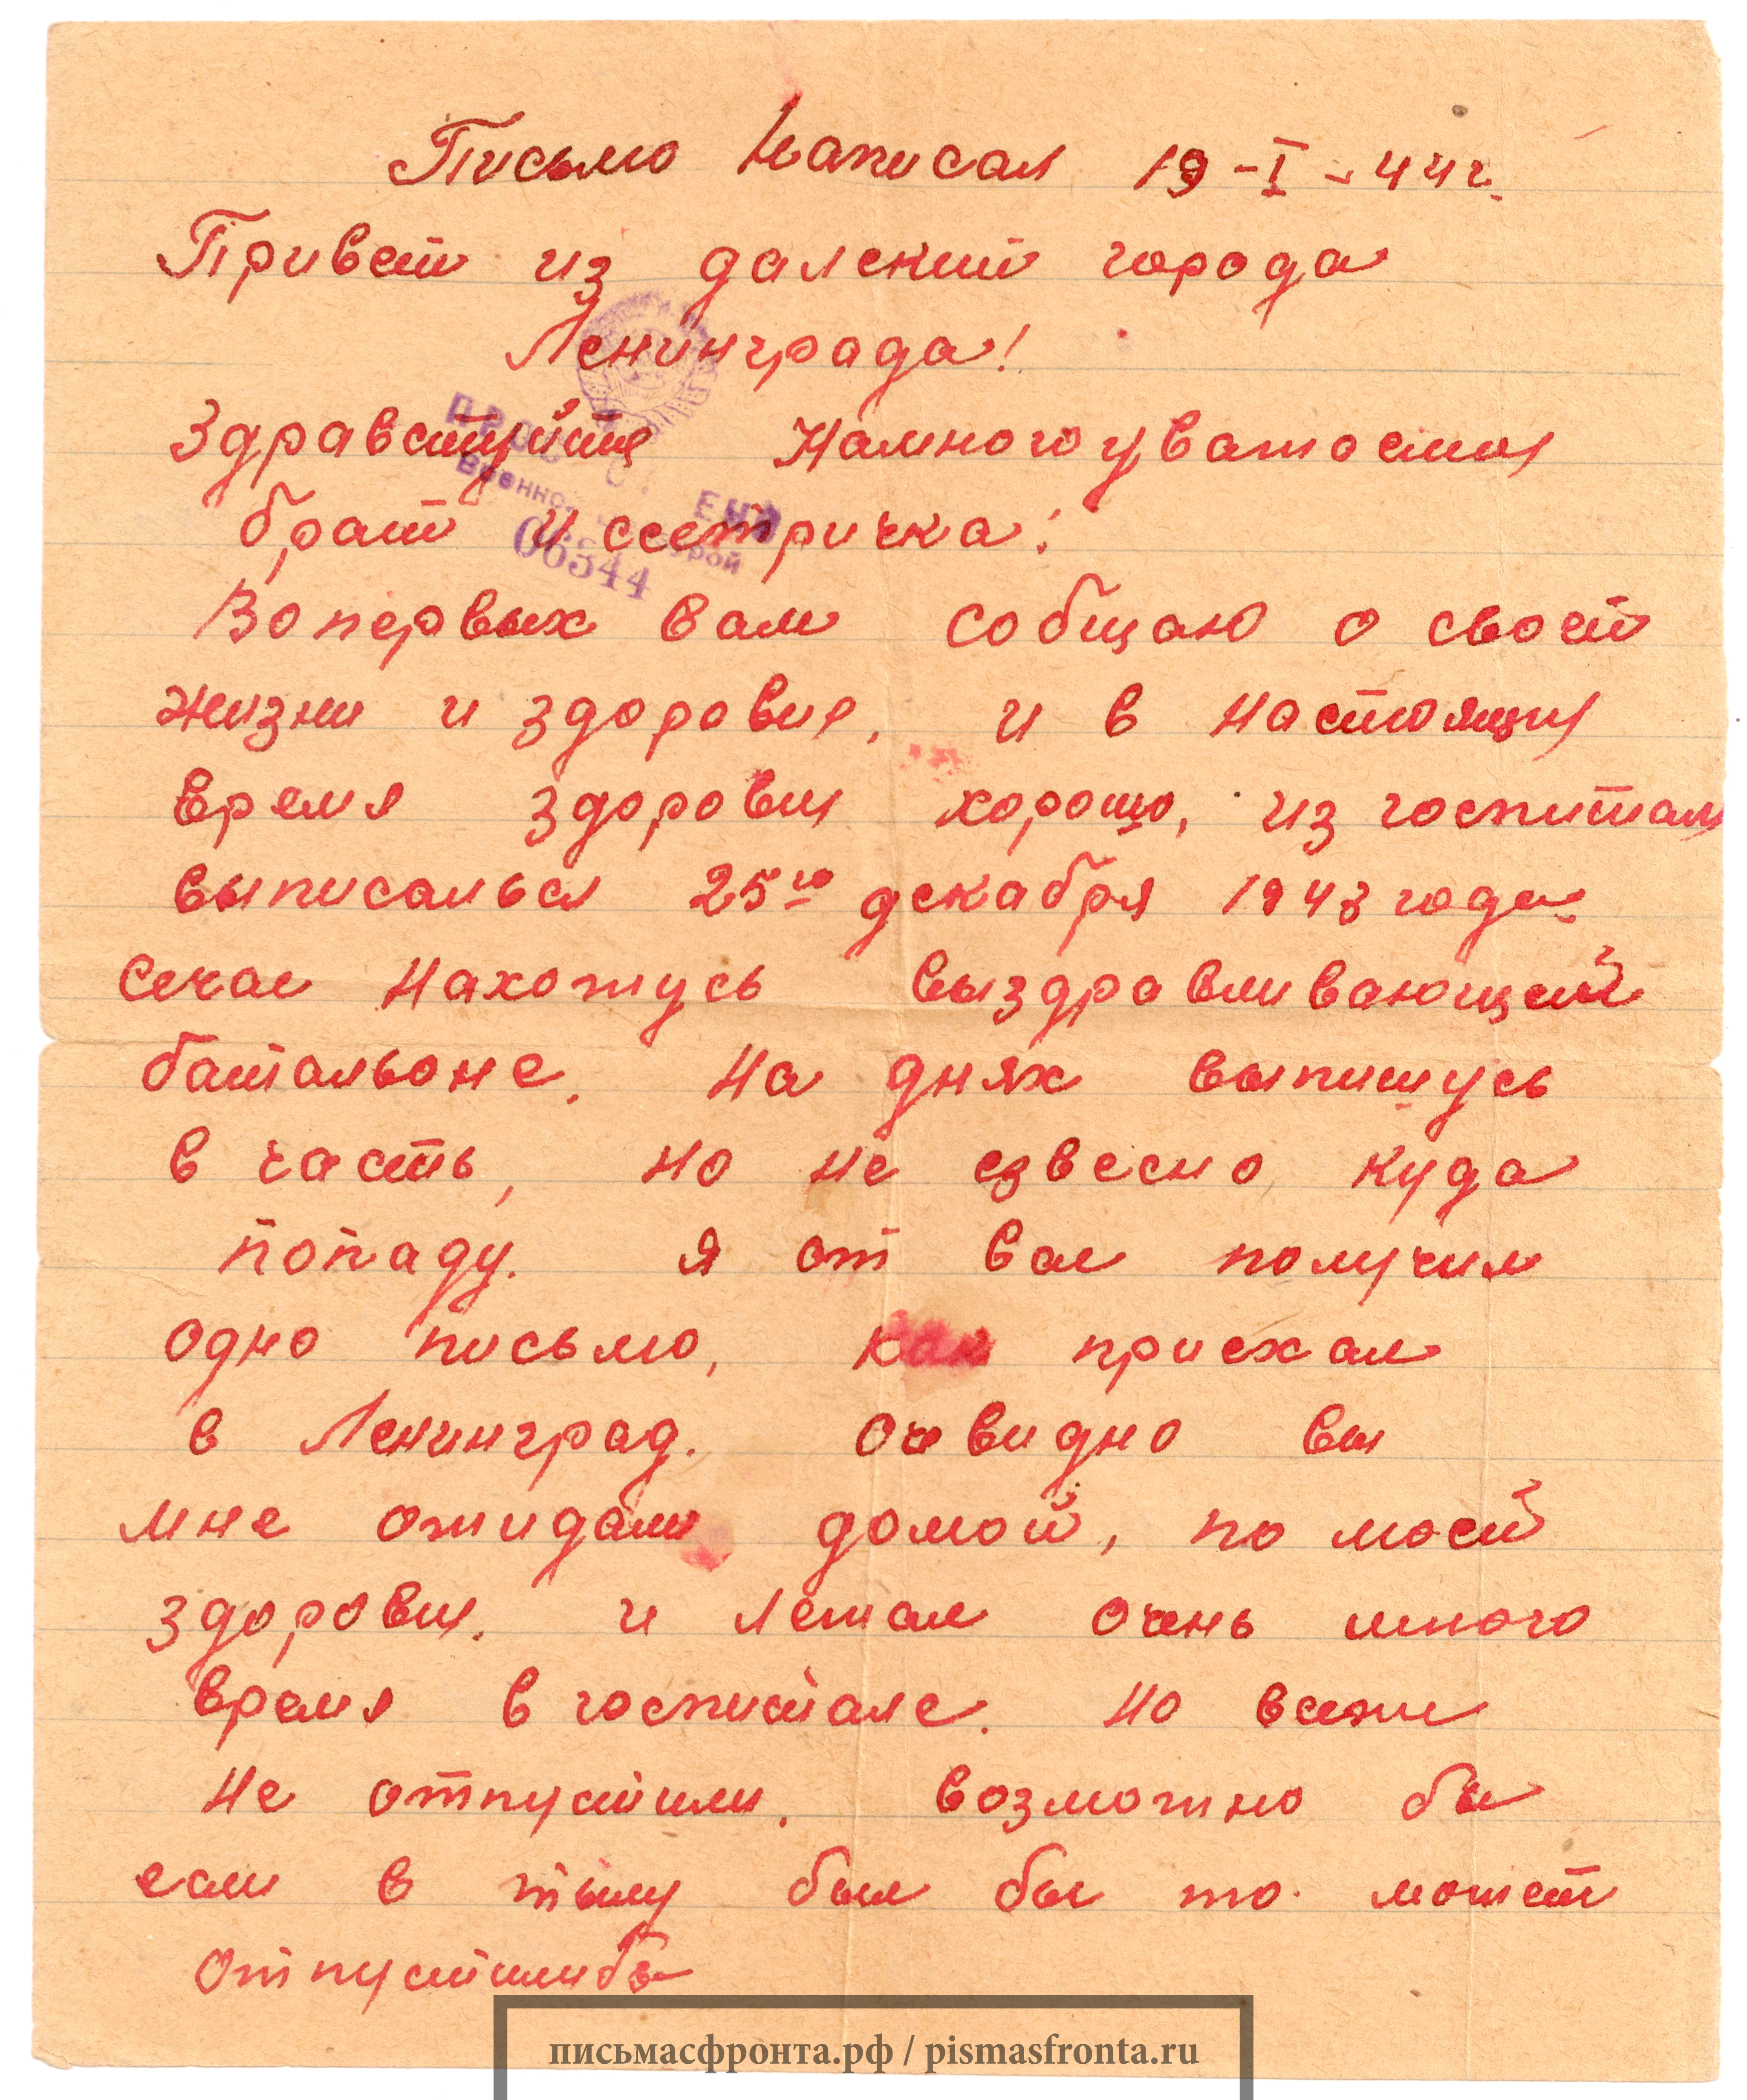 Письмо написал 19-I-44г.
Привет из далекий города
Ленинграда!
Здравствуйте Намногоуважаемый
брат и сестричка!
Во первых вам собщаю о своей
жизни и здоровие, и в настоящи
время здоровы хорошо, из госпитал
выписалься 25го декабря 1943 года
сечас нахожусь выздравливающей
батальоне. На днях выпишусь
в часть, но не езвесно куда
попаду. Я от вас получил
одно письмо, как приехал
в Ленинград. Очевидно вы
мне ожидали домой, по моей
здоровы. и лежал очень много
время в госпитале. Но всеже
не отпустили. Возможно бы
если в тылу был бы то может
отпустилибы
ПРОСМОТРЕНО
Военной Цензурой
06544
письмасфронта.рф / pismasfronta.ru